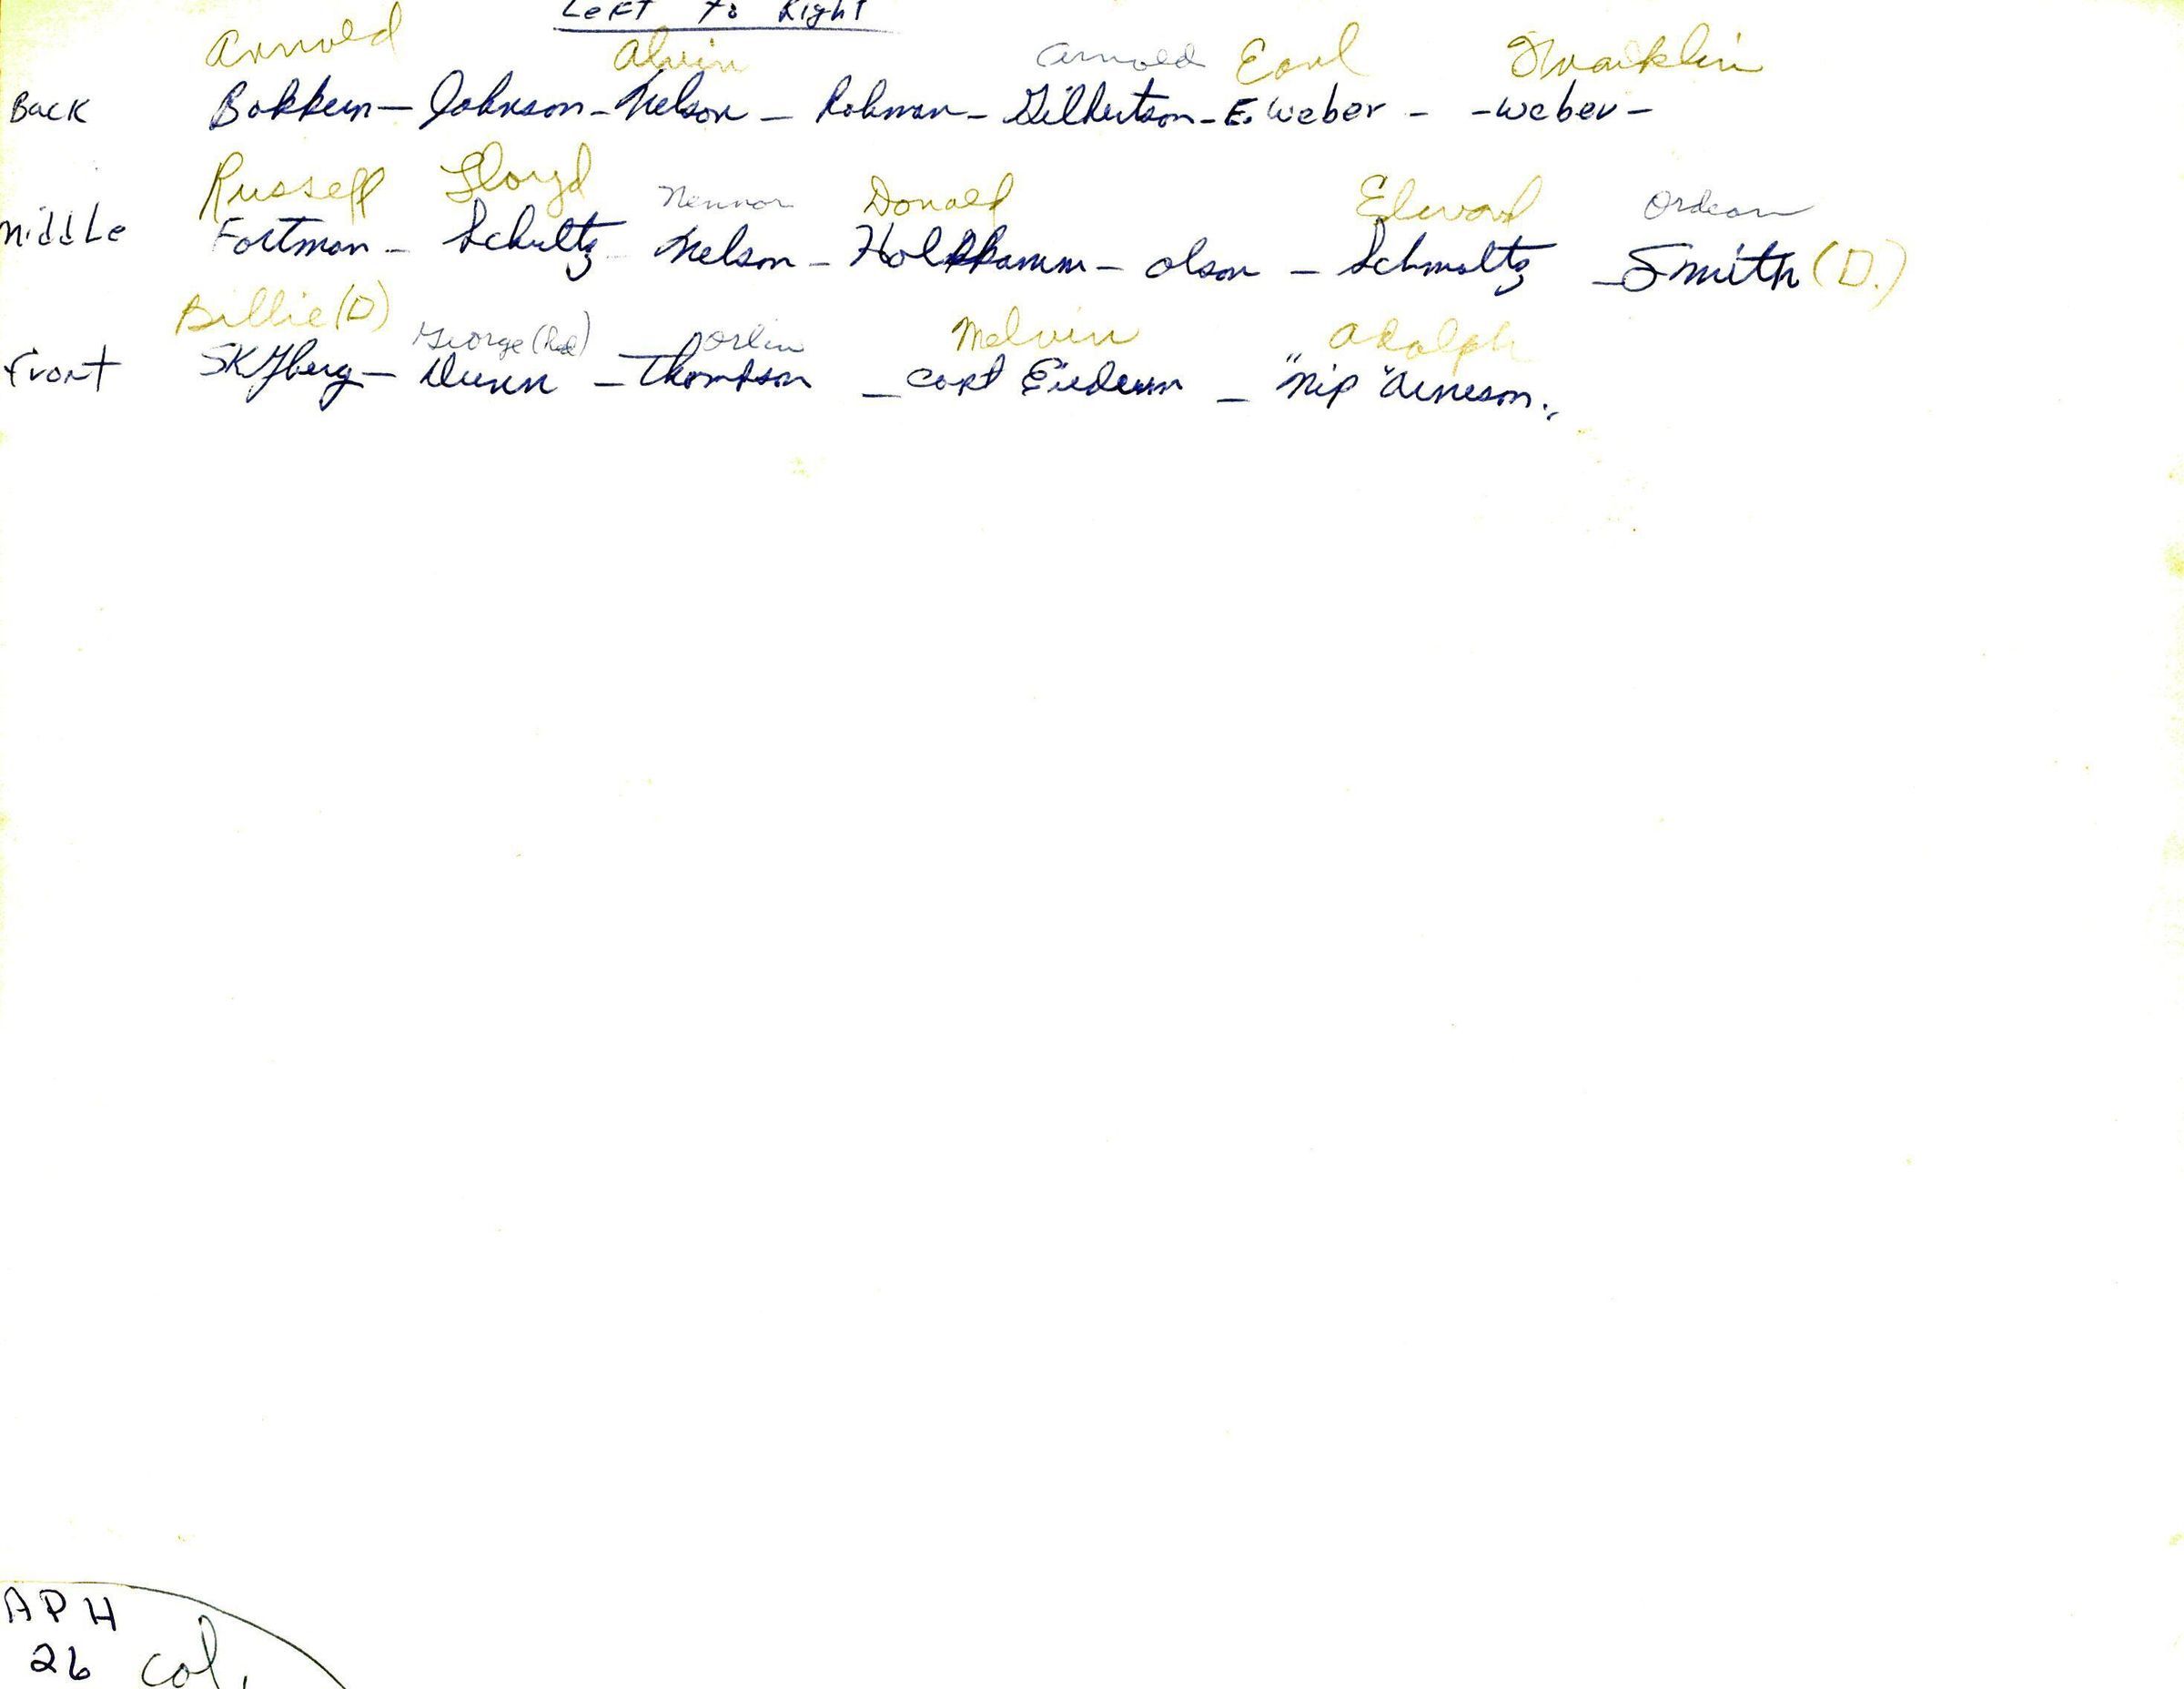 Left to Right
Arnold Alvin Arnold Earl Franklin
Back Bakken - Johnson - Nelson - Rohman - Gilbertson - E. Weber - - Weber -
Russell Lloyd Nennor Donald Edward Ordean
Middle Fortman - Schultz - Nelson - Holkkamm - Olson - Schmaltz - Smith (D.)
Billie (D) George (Red) Orlin Melvin Adolph
Front Skyberg - Dunn - Thompson - Capt - "Nip" Arneson.
APH
26 col.